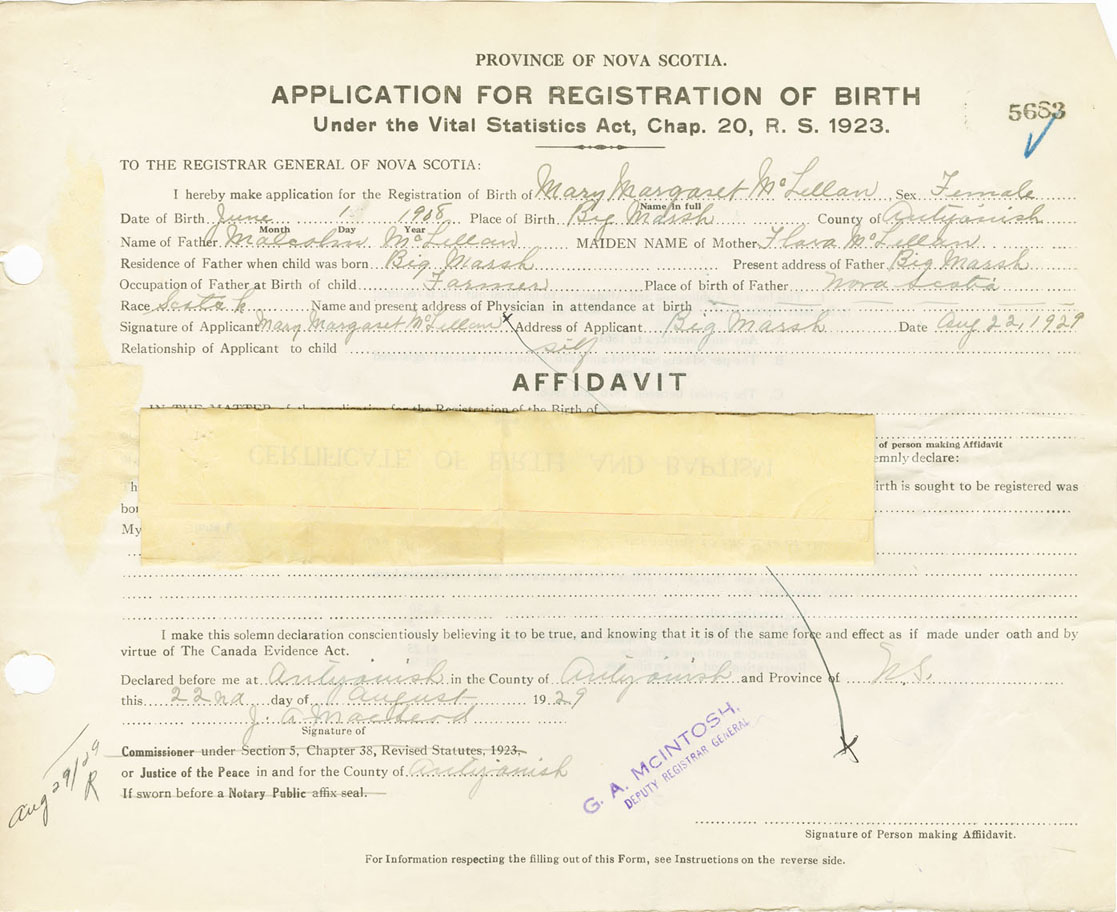 PROVINCE OF NOVA SCOTIA.
APPLICATION FOR REGISTRATION OF BIRTH
5683
Under the Vital Statistics Act, Chap. 20, R. S. 1923.
TO THE REGISTRAR GENERAL OF NOVA SCOTIA:
I hereby make application for the Registration of Birth of Mary Margaret McLellan Sex Female
Name in full
Date of Birth June 1 1908 Place of Birth Big Marsh County of Antigonish
Month Day Year
Name of Father Malcolm McLellan MAIDEN NAME of Mother Flora McLellan
Residence of Father when child was born Big Marsh Present address of Father Big Marsh
Occupation of Father at Birth of child Farmer Place of birth of Father Nova Scotia
Race Scotch Name and present address of Physician in attendance at birth
Signature of Applicant Mary Margaret McLellan x Address of Applicant Big Marsh Date Aug 22, 1929
Relationship of Applicant to child self
AFFIDAVIT
IN THE MATTER of the application for the Registration of the Birth of
of person making Affidavit
emnly declare:
Th irth is sought to be registered was
bor
My
CERTIFICATE OF BIRTH AND BAPTISM
I make this solemn declaration conscientiously believing it to be true, and knowing that it is of the same force and effect as if made under oath and by
virtue of The Canada Evidence Act.
Declared before me at Antigonish in the County of Antigonish and Province of N.S.
this 22nd day of August 1929
J. A. MacLeod
Signature of
Commissioner under Section 5, Chapter 38, Revised Statutes, 1923,
or Justice of the Peace in and for the County of Antigonish
If sworn before a Notary Public affix seal.
Aug 29/29
R
G. A. MCINTOSH,
DEPUTY REGISTRAR GENERAL
x
Signature of Person making Affiidavit.
For Information respecting the filling out of this Form, see Instructions on the reverse side.